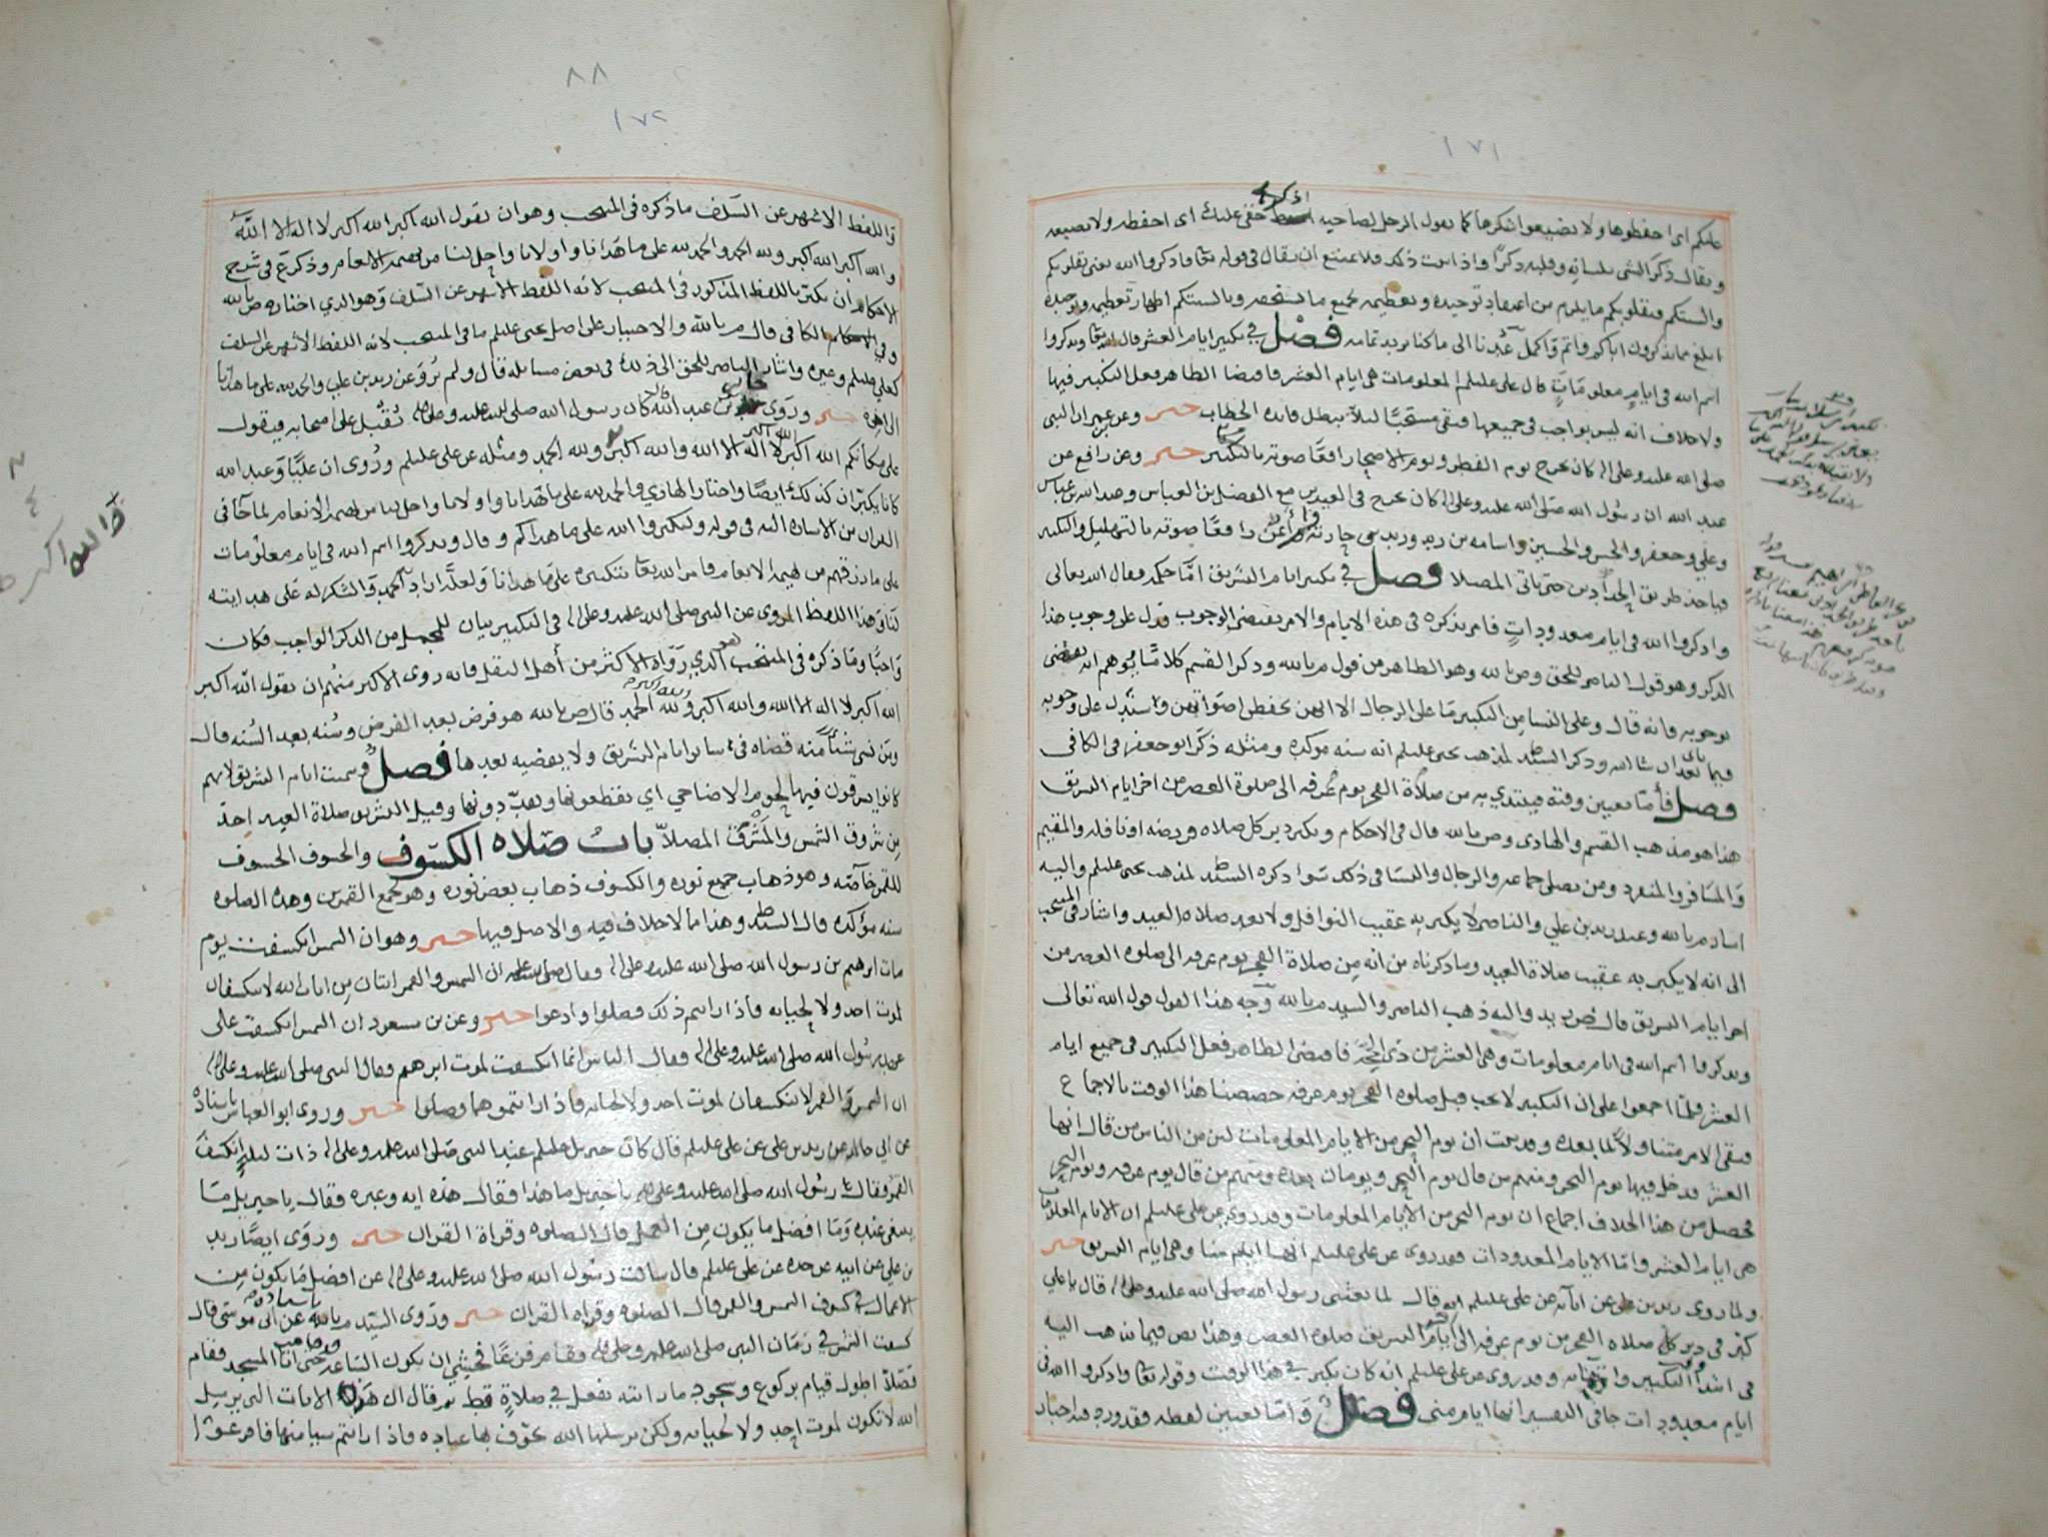 ١٧١
عليكم اى احفظوها ولا تضيعوا شكرها كما يقول الرجل لصاحبه اذكر حقى عليك اى احفظه ولا تضيعه
ويقال ذكر الشى بلسانه وقلبه ذكرًا واذا ثبت ذلك فلا يمتنع ان يقال فى قوله تعا واذكروا الله يعنى بقلوبكم
والسنتكم فبقلوبكم ما يلزم من اعتقاد توحيده وتعظيمه بجميع ما يستحقه وبالسنتكم اظهار تعظيمه وتوحيده
ابلغ مما تذكرون اباكم واتم واكمل عُدنا الى ما كنا نريد تمامه فصل فى تكبير ايام العشر قال الله تعا ويذكروا
اسم الله فى ايام معلومات قال على عليلم المعلومات هى ايام العشر فاقتضا الظاهر فعل التكبير فيها
ولا خلاف انه ليس بواجب فى جميعها فبقى مستحبًا لئلا يبطل فائدة الخطاب خبر وعن ان النبى
صلى الله عليه وعلى اله كان يخرج يوم الفطر ويوم الاضحى رافعًا صوته بالتكبير خبر وعن رافع عن
عبد الله ان رسول الله صلى الله عليه وعلى اله كان يخرج فى العيدين مع الفضل بن العباس وعبد الله بن عباس
وعلي وجعفر والحسن والحسين واسامه بن زيد وزيد بن حارثة وايمن رافعًا صوته بالتهليل والتكبير
فياخذ طريق الحدادين حتى ياتى المصلا فصل فى تكبير ايام التشريق امّا حكمه فقال الله تعالى
واذكروا الله فى ايام معدودات فامر بذكره فى هذه الايام والامر يقتضى الوجوب فدل على وجوب هذا
الذكر وهو قول الناصر للحق وص بالله وهو الظاهر من قول م بالله وذكر القسم كلامًا يوهم انه يقتضى
بوجوبه فانه قال وعلى النسا من التكبير ما على الرجال الا انهن يخفضن اصواتهن واستدل على وجوبه
فيما ياتى بعد ان شا الله وذكر السيدط لمذهب يحيى عليلم انه سنه موكده ومثله ذكر ابو جعفر فى الكافى
فصل فأما تعيين وقته فيبتدى به من صلاة الفجر يوم عرفه الى صلوة العصر من اخر ايام التشريق
هذا هو مذهب القسم والهادى وص بالله قال فى الاحكام ويكبر دبر كل صلاه فريضه او نافله والمقيم
والمسافر والمنفرد ومن يصلى جماعه والرجال والنسا فى ذلك سوا ذكره السيدط لمذهب يحيى عليلم واليه
اشار م بالله وعند زيد بن علي والناصر لا يكبر به عقيب النوافل ولا بعد صلاه العيد واشار فى المنتخب
الى انه لا يكبر به عقيب صلاة العيد وما ذكرناه من انه من صلاة الفجر يوم عرفه الى صلوه العصر من
اخر ايام التشريق قال ص زيد واليه ذهب الناصر والسيد م بالله وجه هذا القول قول الله تعالى
ويذكروا اسم الله فى ايام معلومات وهى العشر من ذى الحجة فاقتضى الظاهر فعل التكبير فى جميع ايام
العشر فلمّا اجمعوا على ان التكبير لا يجب قبل صلوه الفجر يوم عرفه خصصنا هذا الوقت بالاجماع
فبقى الامر متناولًا لما بعده وقد ثبت ان يوم النحر من الايام المعلومات لئن من الناس من قال انها
العشر فدخل فيها يوم النحر ومنهم من قال يوم النحر ويومان بعده ومنهم من قال يوم عرفه ويوم النحر
فحصل من هذا الخلاف اجماع ان يوم النحر من الايام المعلومات وقد روى عن على عليلم ان الايام المعلومات
هى ايام العشر وامّا الايام المعدودات فقد روى عن على عليلم انها ايام منا وهى ايام التشريق خبر
ولما روى زيد بن على عن ابائه عن على عليلم انه قال لما بعثنى رسول الله صلى الله عليه وعلى اله قال يا علي
كبّر فى دبر كل صلاه الفجر من يوم عرفه الى اخر ايام التشريق صلوه العصر وهذا نص فيما نذهب اليه
فى ابتداء التكبير وانتهائه وقد روى عن على عليلم انه كان يكبر فى هذا الوقت وقوله تعا واذكروا الله فى
ايام معدودات جا فى التفسير انها ايام منى فصل وامّا تعيين لفظه فقد ورد فيه اخبار
٨٨
١٧٢
واللفظ الاشهر عن السلف ما ذكره فى المنتخب وهو ان يقول الله اكبر الله اكبر لا اله الا الله
والله اكبر الله اكبر ولله الحمد والحمد لله على ما هدانا واولانا واحل لنا من بهيمة الانعام وذكر ع فى شرح
الاحكام ان يكبر باللفظ المذكور فى المنتخب لانه اللفظ الاشهر عن السلف وهو الذي اختاره ص بالله
وفى الكافى قال م بالله والاختيار على اصل يحيى عليلم ما فى المنتخب لانه اللفظ الاشهر عن السلف
كعلي عليلم وغيره واشار الناصر للحق الى ذلك فى بعض مسائله فقال ولم يُروَ عن زيد بن علي والحمد لله على ما هدانا
الى اخره خبر وروى جابر بن عبد الله قال كان رسول الله صلى الله عليه وعلى اله يُقبل على اصحابه فيقول
على مكانكم الله اكبر الله اكبر لا اله الا الله والله اكبر ولله الحمد ومثله عن على عليلم ورُوى ان عليًّا وعبد الله
كانا يكبران كذلك ايضًا واختار الهادي والحمد لله على ما هدانا واولانا واحل لنا من بهيمة الأنعام لما جا فى
القران من الاشاره اليه فى قوله ولتكبروا الله على ما هداكم وقال ويذكروا اسم الله فى ايام معلومات
على ما رزقهم من بهيمة الانعام فامر الله تعا بتكبيره على ما هدانا ولعله اراد الحمد والشكر له على هدايته
لنا وهذا اللفظ المروى عن النبى صلى الله عليه وعلى اله فى التكبير بيان للمجمل من الذكر الواجب فكان
واجبًا وما ذكره فى المنتخب هو الذي رواه الاكثر من أهل النقل فانه روى الاكثر منهم ان يقول الله اكبر
الله اكبر لا اله الا الله والله اكبر ولله الحمد قال ص بالله هو فرض بعد الفرض وسُنه بعد السُنه قال
ومن نسى شيئًا منه قضاه فى سائر ايام التشريق ولا يقضيه بعدها فصل وسميت ايام التشريق لانهم
كانوا يشرقون فيها لحوم الاضاحي اي يقطعونها وقيل التشريق صلاة العيد اخذ
من شروق الشمس والمشرق المصلا باب صلاه الكسوف والخسوف الخسوف
للقمر خاصه وهو ذهاب جميع نوره والكسوف ذهاب بعض نوره وهو يجمع القمرين وهذه الصلوه
سنه مؤكده قال السيدط وهذا مما لا خلاف فيه والاصل فيها خبر وهو ان الشمس انكسفت يوم
مات ابرهيم بن رسول الله صلى الله عليه وعلى اله فقال صلى الله عليه ان الشمس والقمر ايتان من ايات الله لا ينكسفان
لموت احد ولا لحياته فاذا رايتم ذلك فصلوا وادعوا خبر وعن بن مسعود ان الشمس انكسفت على
عهد رسول الله صلى الله عليه وعلى اله فقال الناس انما انكسفت لموت ابرهيم فقال النبى صلى الله عليه وعلى اله
ان الشمس والقمر لا ينكسفان لموت احد ولا لحياته فاذا رايتموهما فصلوا خبر وروى ابو العباس باسناده
عن ابي خالد عن زيد بن على عن على عليلم قال كان جبريل عليلم عند النبى صلى الله عليه وعلى اله ذات ليله اذ انكسف
القمر فقال رسول الله صلى الله عليه وعلى اله يا جبريل ما هذا فقال هذه ايه وعبره فقال يا جبريل ما
ينبغى عنده وما افضل ما يكون من العمل قال الصلوه وقراة القران خبر وروى ايضًا زيد
بن على عن ابيه عن جده عن على عليلم قال سالت رسول الله صلى الله عليه وعلى اله عن افضل ما يكون من
الاعمال فى كسوف الشمس والقمر قال الصلوه وقراه القران خبر وروى السيد م بالله باسناده عن ابى موسى قال
كسفت الشمس فى زمان النبى صلى الله عليه وعلى اله فقام فزعًا فخشي ان يكون الساعه حتى اتا المسجد فقام
فصلا اطول قيام بركوع وسجود ما رايته يفعل فى صلاةٍ قط ثم قال ان هذه الايات التى يرسل
الله لا تكون لموت احد ولا لحياته ولكن يرسلها الله يخوف بها عباده فاذا رايتم شيا منها فافزعوا
والله اكبر